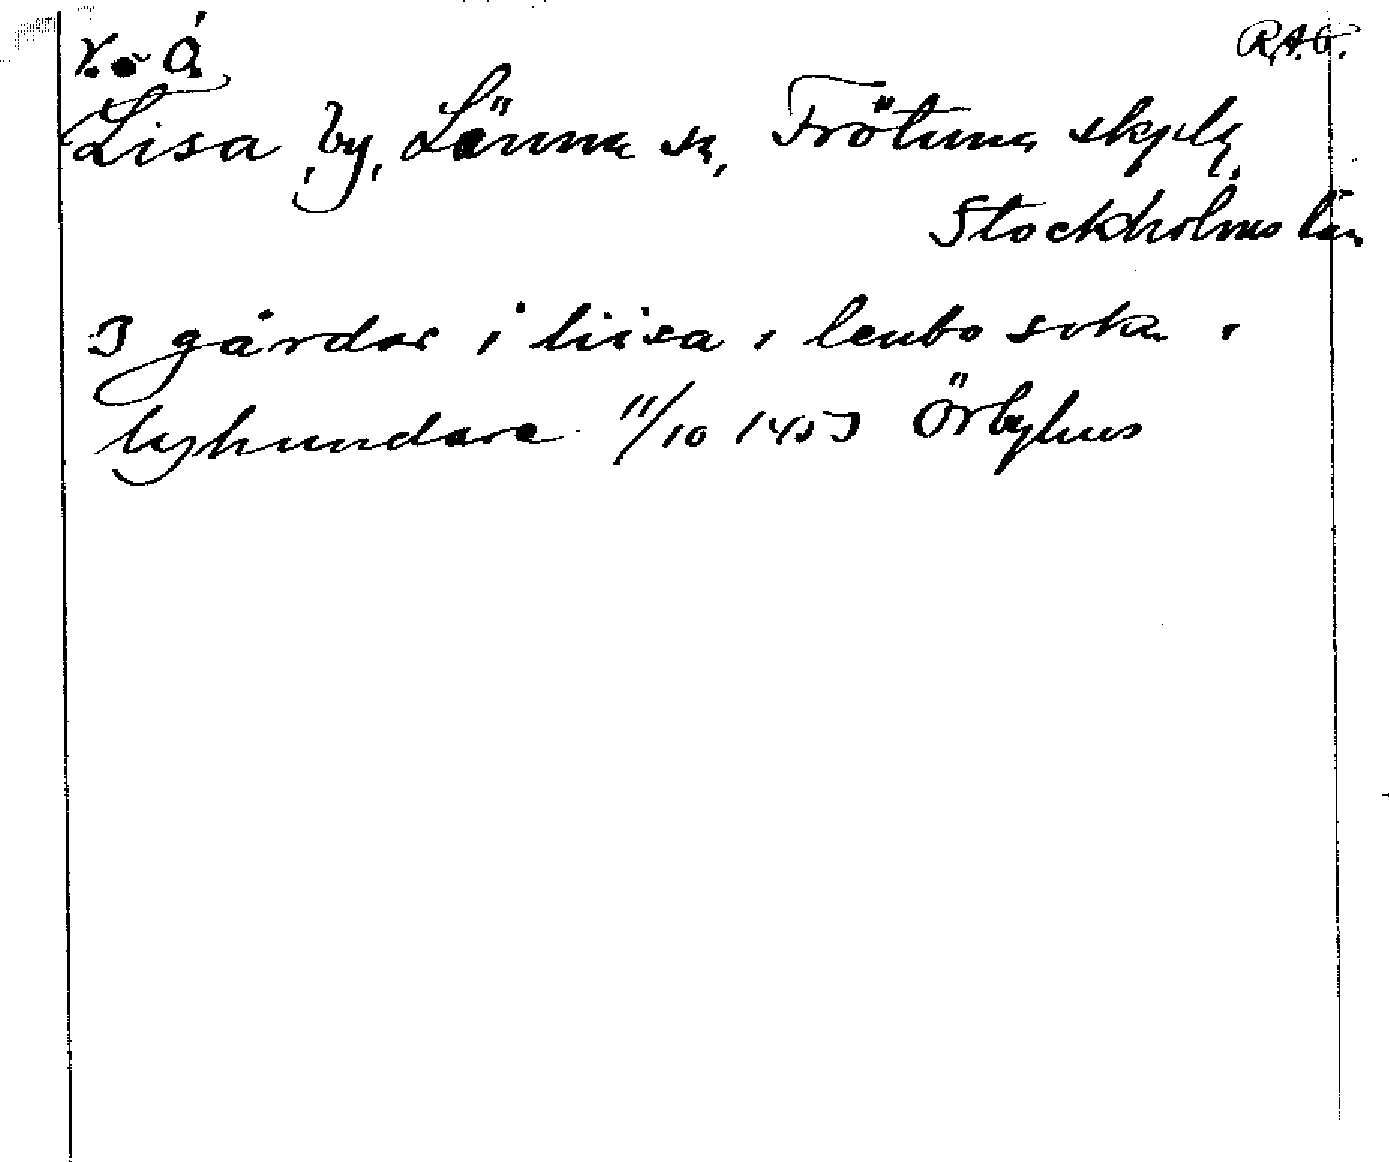 R.A.O.
Lisa, by, Länna sn, Frötuna skpl,
Stockholms län
3 gårdar i liisa, lenbo sokn i
lyhundare 11/10 1453 Örbyhus